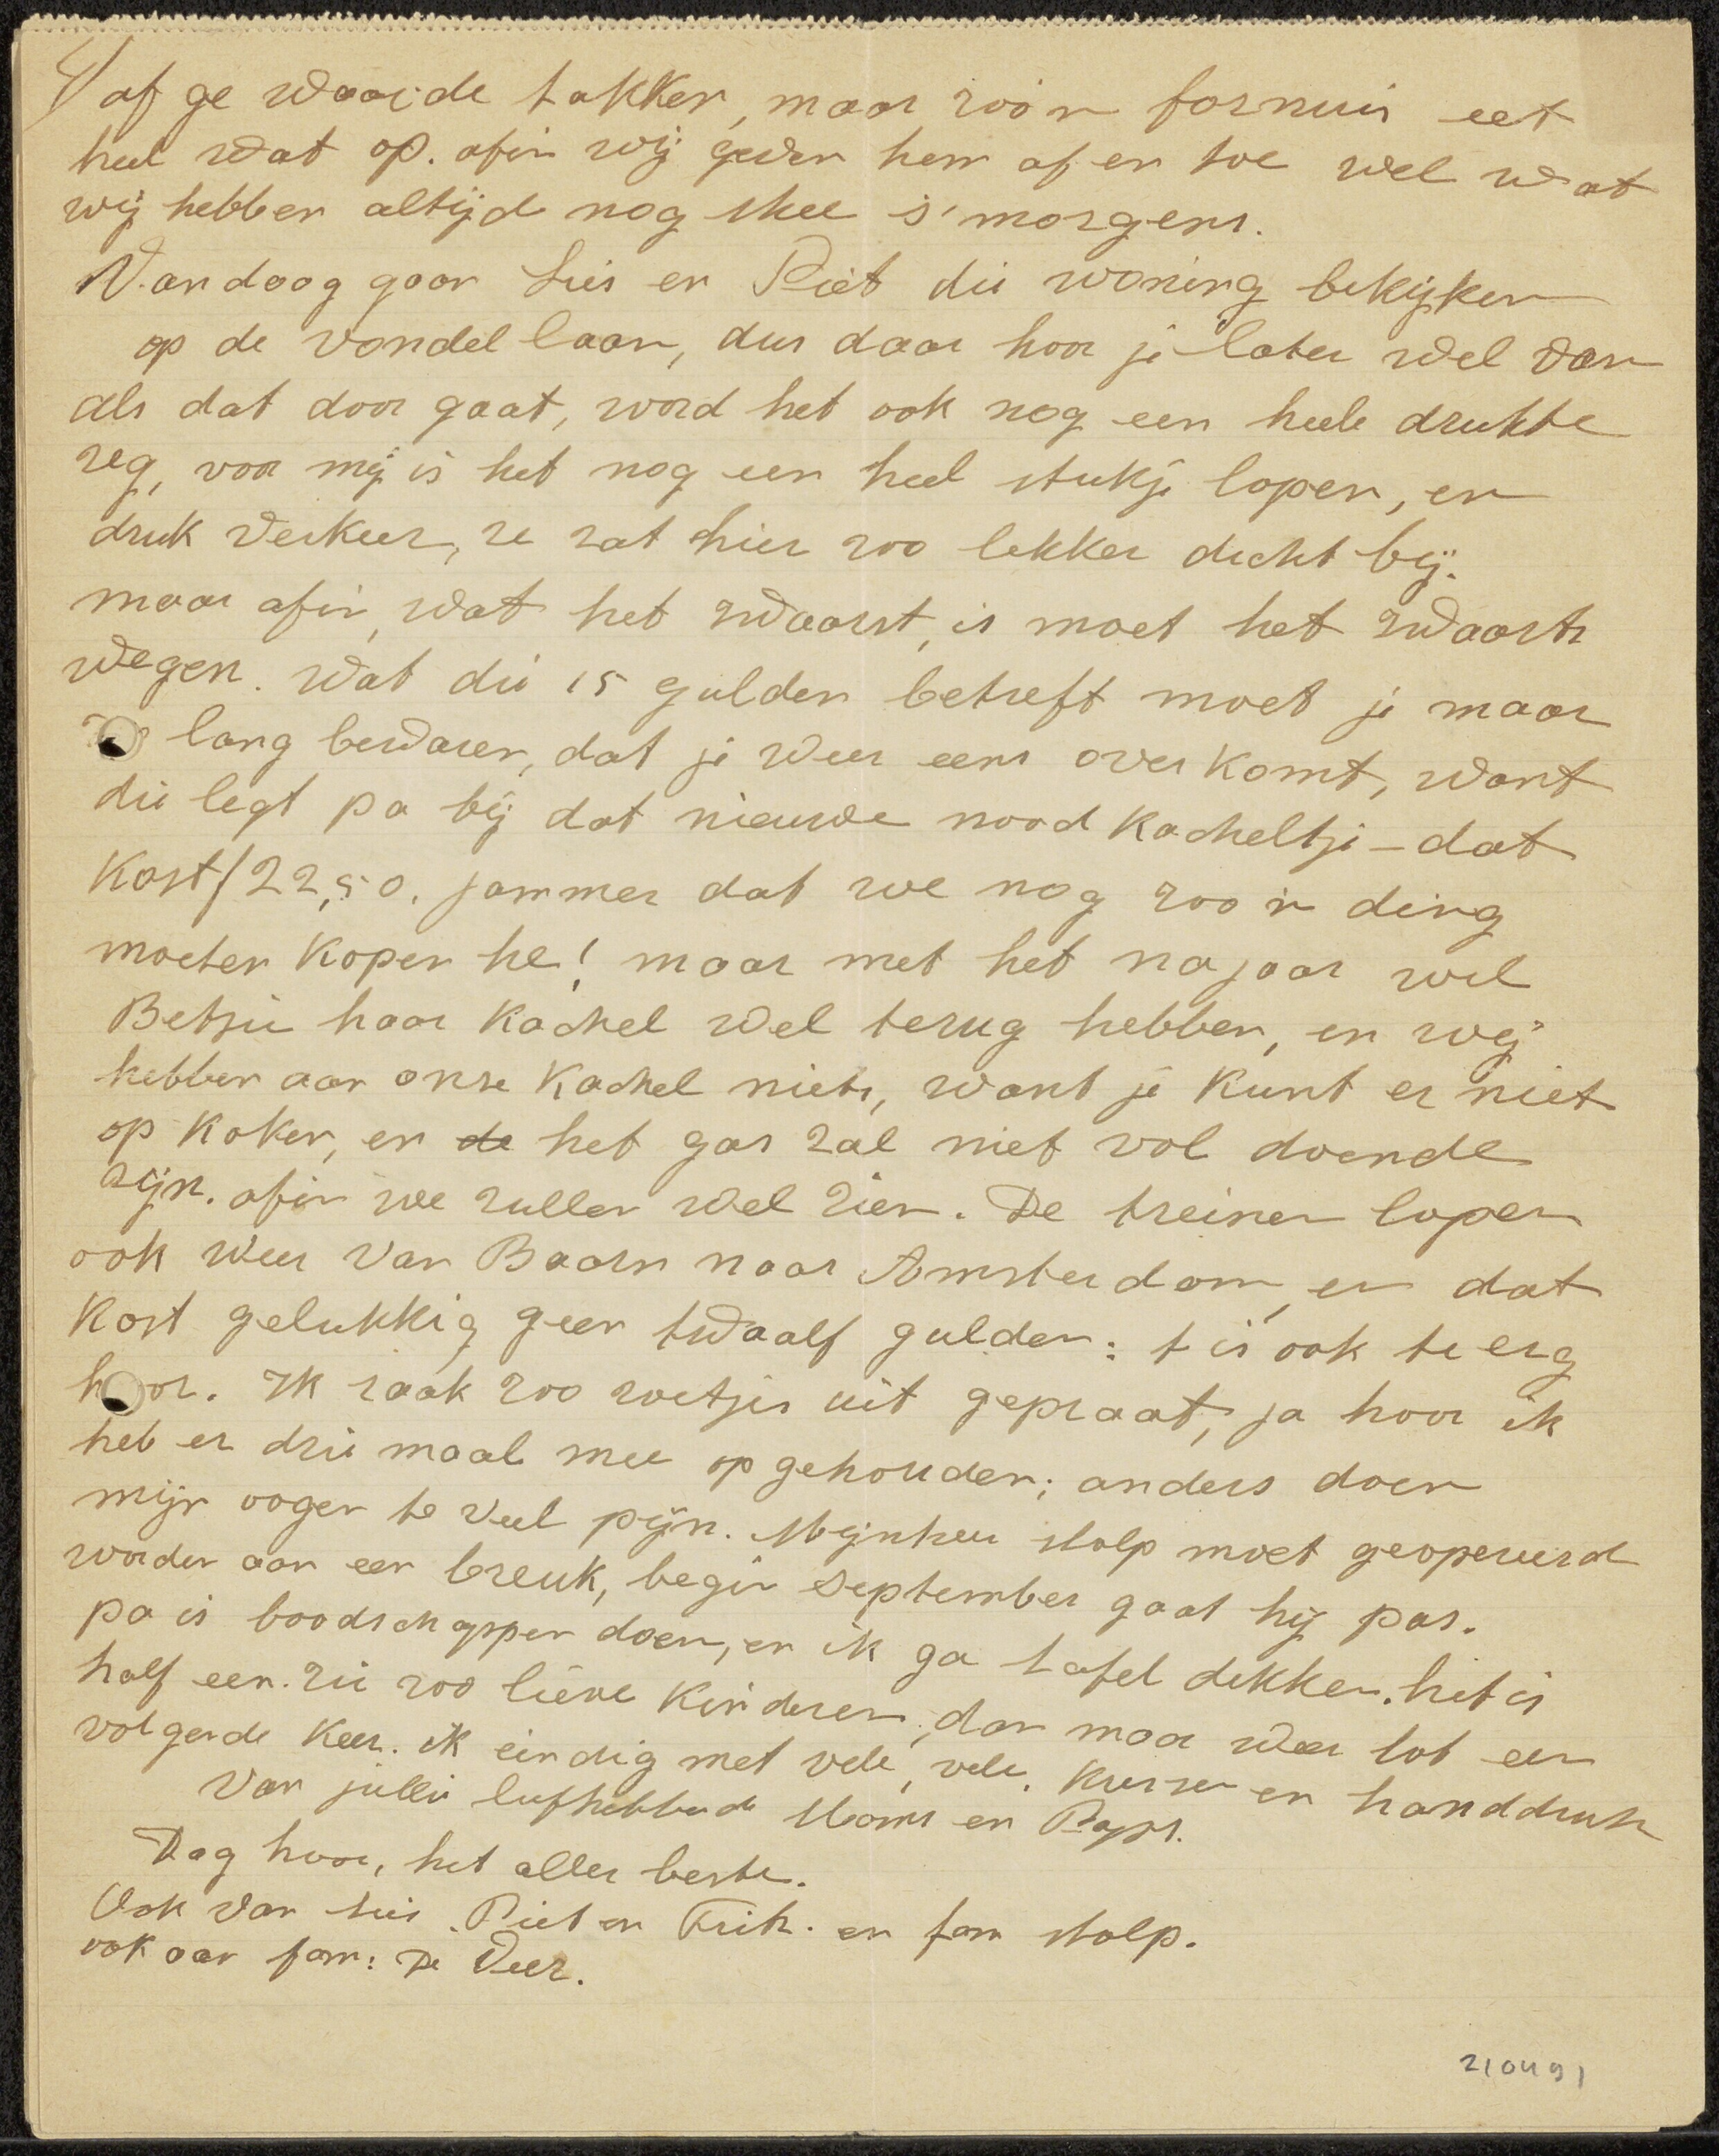 4/ af ge waaide takken, maar zoo'n fornuis eet
heel wat op. afin wij geven hem af en toe wel wat
wij hebben altijd nog thee s'morgens.
Vandaag gaan Lies en Piet die woning bekijken
op de vondel laan, dus daar hoor je later wel van
als dat door gaat, word het ook nog een heele drukte
zeg, voor mij is het nog een heel stukje lopen, en
druk verkeer, ze zat hier zoo lekker dicht bij.
maar afin, wat het zwaarst, is moet het zwaarste
wegen. Wat die 15 gulden betreft moet je maar
zoo lang bewaren, dat je weer eens over komt, want
die legt pa bij dat nieuwe nood kacheltje - dat
kost f 22,50. jammer dat we nog zoo'n ding
moeten koopen he! maar met het najaar wil
Betsie haar kachel wel terug hebben, en wij
hebben aan onze kachel niets, want je kunt er niet
op koken, en de het gas zal niet vol doende
zijn. afin we zullen wel zien. De treinen lopen
ook weer van Baarn naar Amsterdam, en dat
kost gelukkig geen twaalf gulden: t is ook te erg
hoor. Ik raak zoo zoetjes uit gepraat, ja hoor ik
heb er drie maal mee op gehouden; anders doen
mijn oogen te veel pijn. Mijnheer Stolp moet geopereerd
worden aan een breuk, begin September gaat hij pas.
pa is boodschappen doen, en ik ga tafel dekken. het is
half een. zie zoo lieve kinderen, dan maar weer tot een
volgende keer. ik eindig met vele, vele, kussen en handdruk
van jullie liefhebbende Moms en Paps.
Dag hoor, het aller beste.
Ook van Lies. Piet en Frits. en fam stolp.
ook aan fam: De Veer.
210491